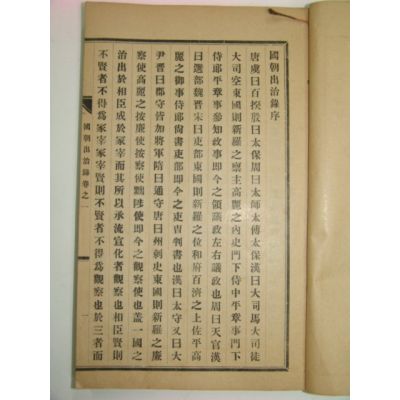 國朝出治錄序
唐虞曰百揆殷曰太保周曰太師太傅太保漢曰大司馬大司徒
大司空東國則新羅之察主高麗之內史門下侍中平章事門下
侍郎平章事參知政事卽今之領議政左右議政也周曰天官漢
曰選部魏晋宋曰吏部東國則新羅之位和府百濟之上佐平高
麗之御事侍郎尙書吏部卽今之吏曺判書也漢曰太守又曰大
尹晋曰郡守皆加將軍隋曰通守唐曰州刺史東國則新羅之廉
察使高麗之按廉使按察使黜陟使卽今之觀察使也盖一國之
治出於相臣成於冢宰而其所以承流宣化者觀察也相臣賢則
不賢者不得爲冢宰冢宰賢則不賢者不得爲觀察也於三者而
國朝出治錄卷之一
一